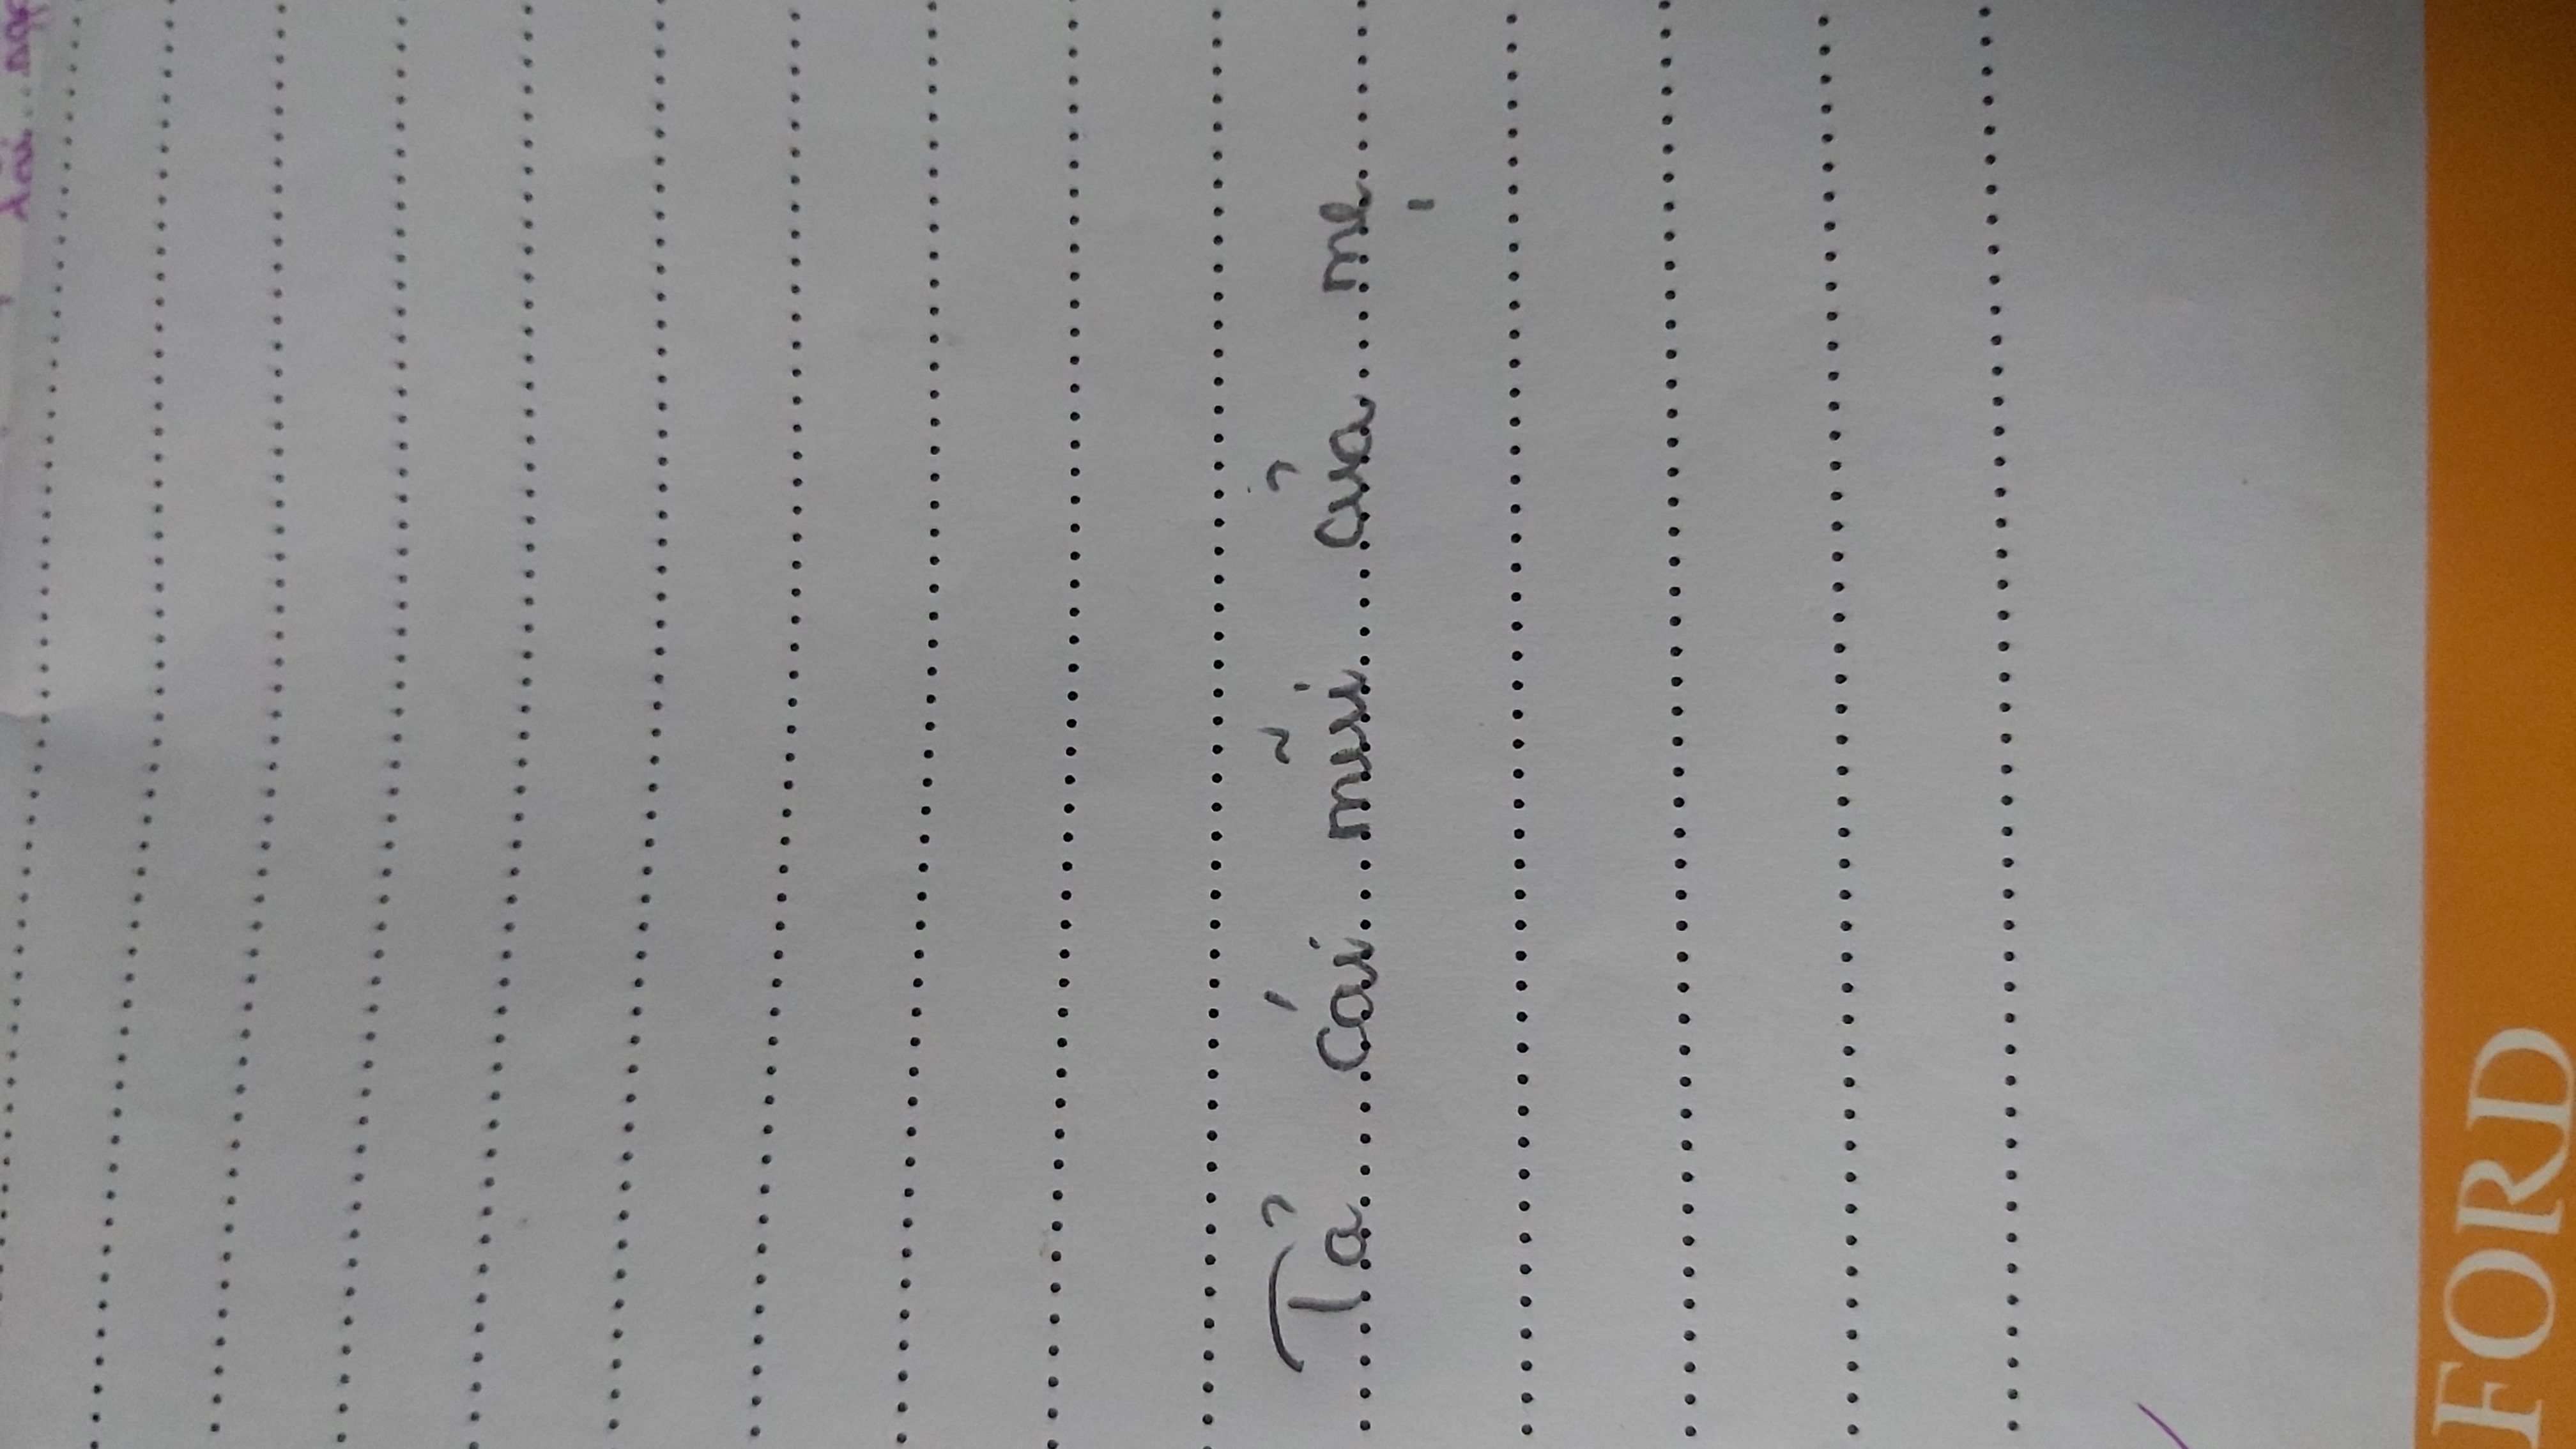 Tả cái mũi của mẹ
FORD